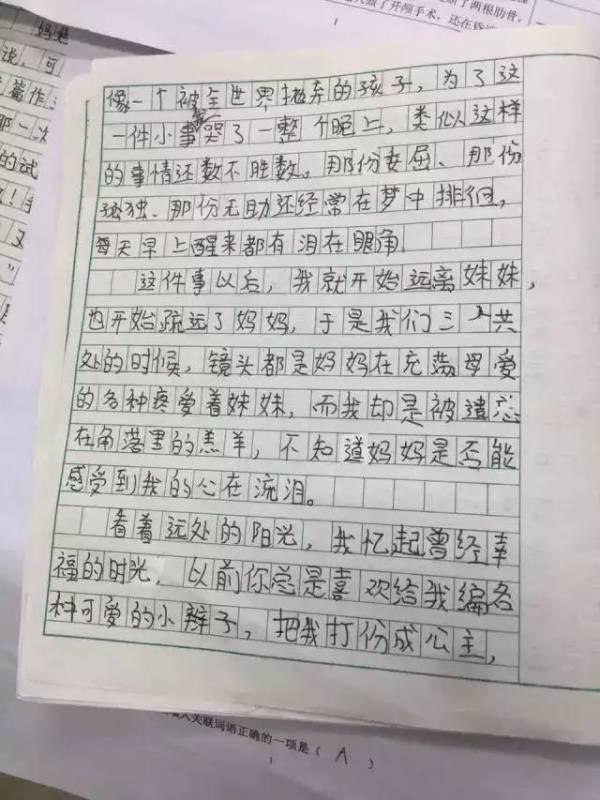 了两根肋骨,
做了开颅手术,还在昏
妈妈
说,可
那一次
的试
又
像一个被全世界抛弃的孩子,为了这
一件小事我哭了一整个晚上,类似这样
的事情还数不胜数。那份委屈、那份
孤独、那份无助还经常在梦中排徊,
每天早上醒来都有泪在眼角
这件事以后,我就开始远离妹妹,
也开始疏远了妈妈,于是我们三人共
处的时候,镜头都是妈妈在充满母爱
的各种疼爱着妹妹,而我却是被遗忘
在角落里的羔羊,不知道妈妈是否能
感受到我的心在流泪。
看着远处的阳光,我忆起曾经幸
福的时光,以前你总是喜欢给我编各
种可爱的小辫子,把我打份成公主,
入关联词语正确的一项是( A )